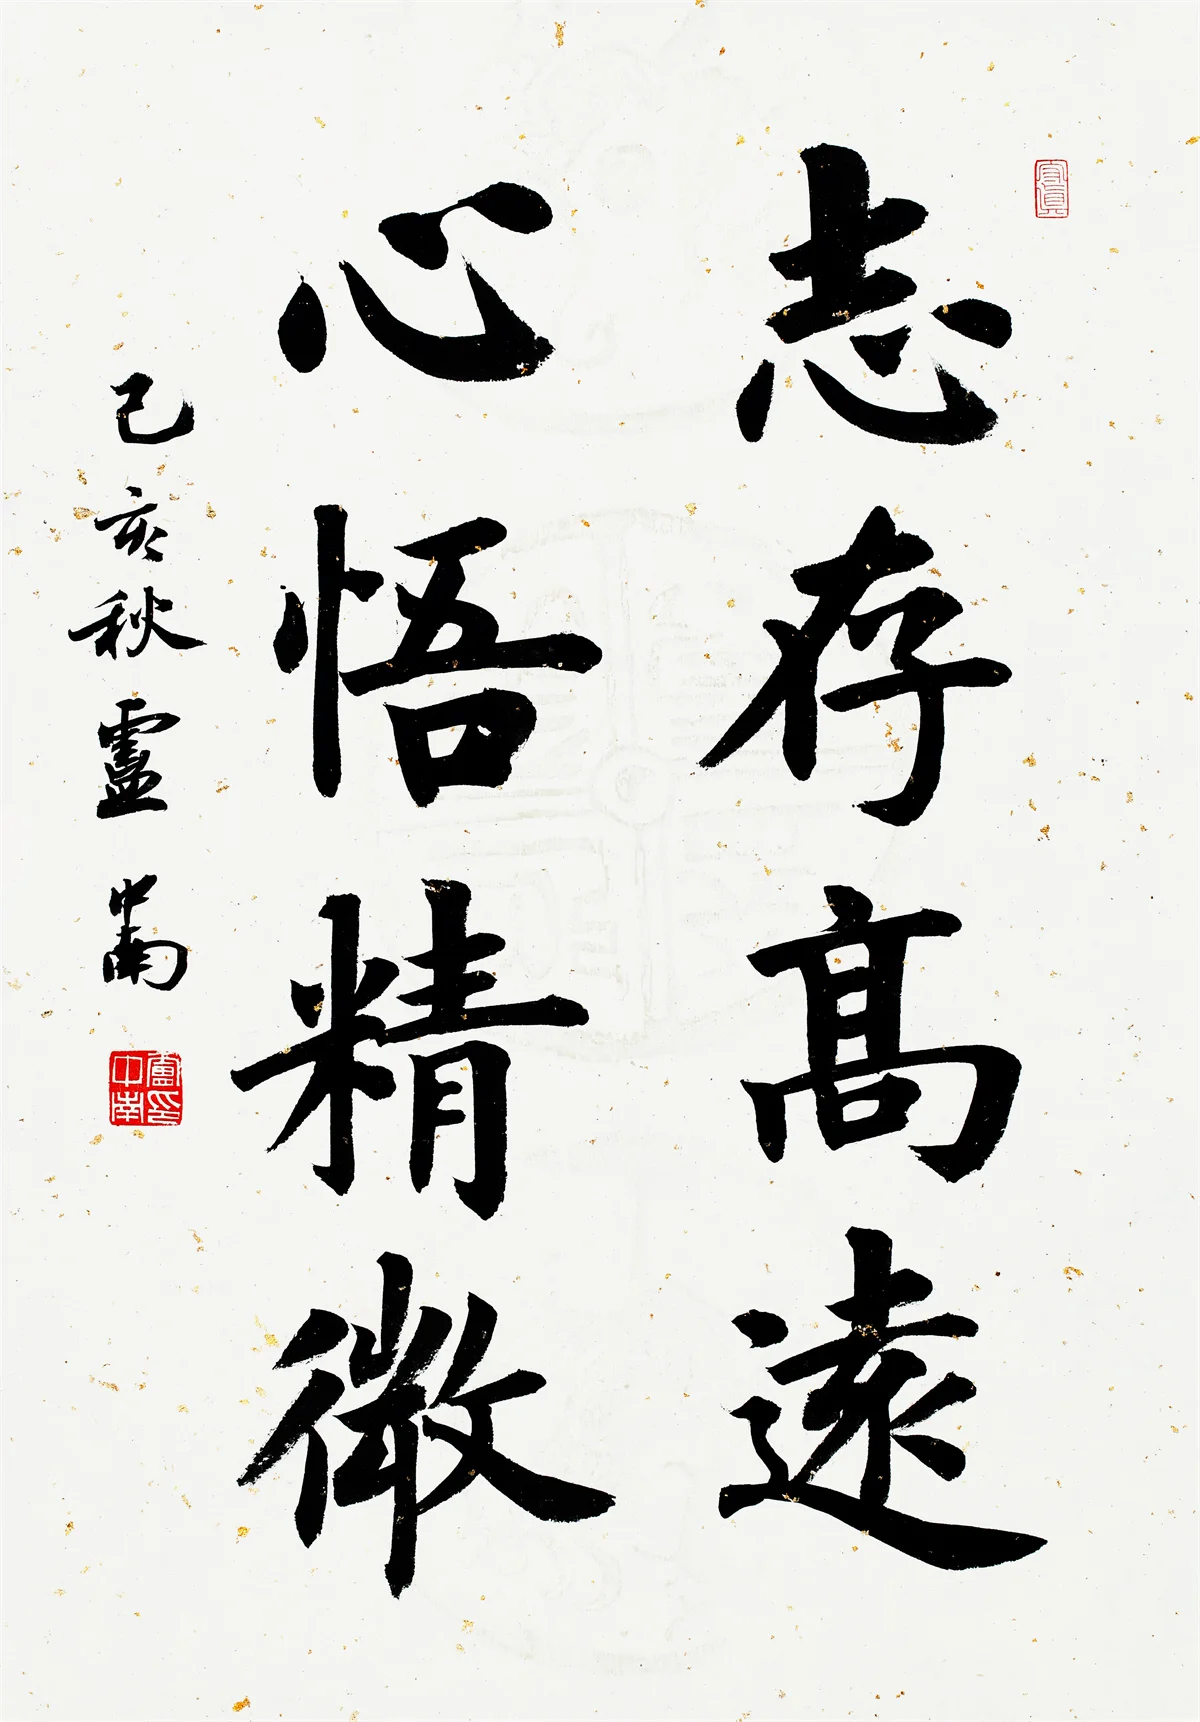 志存髙遠
心悟精微
己亥秋盧中南
盧印中南